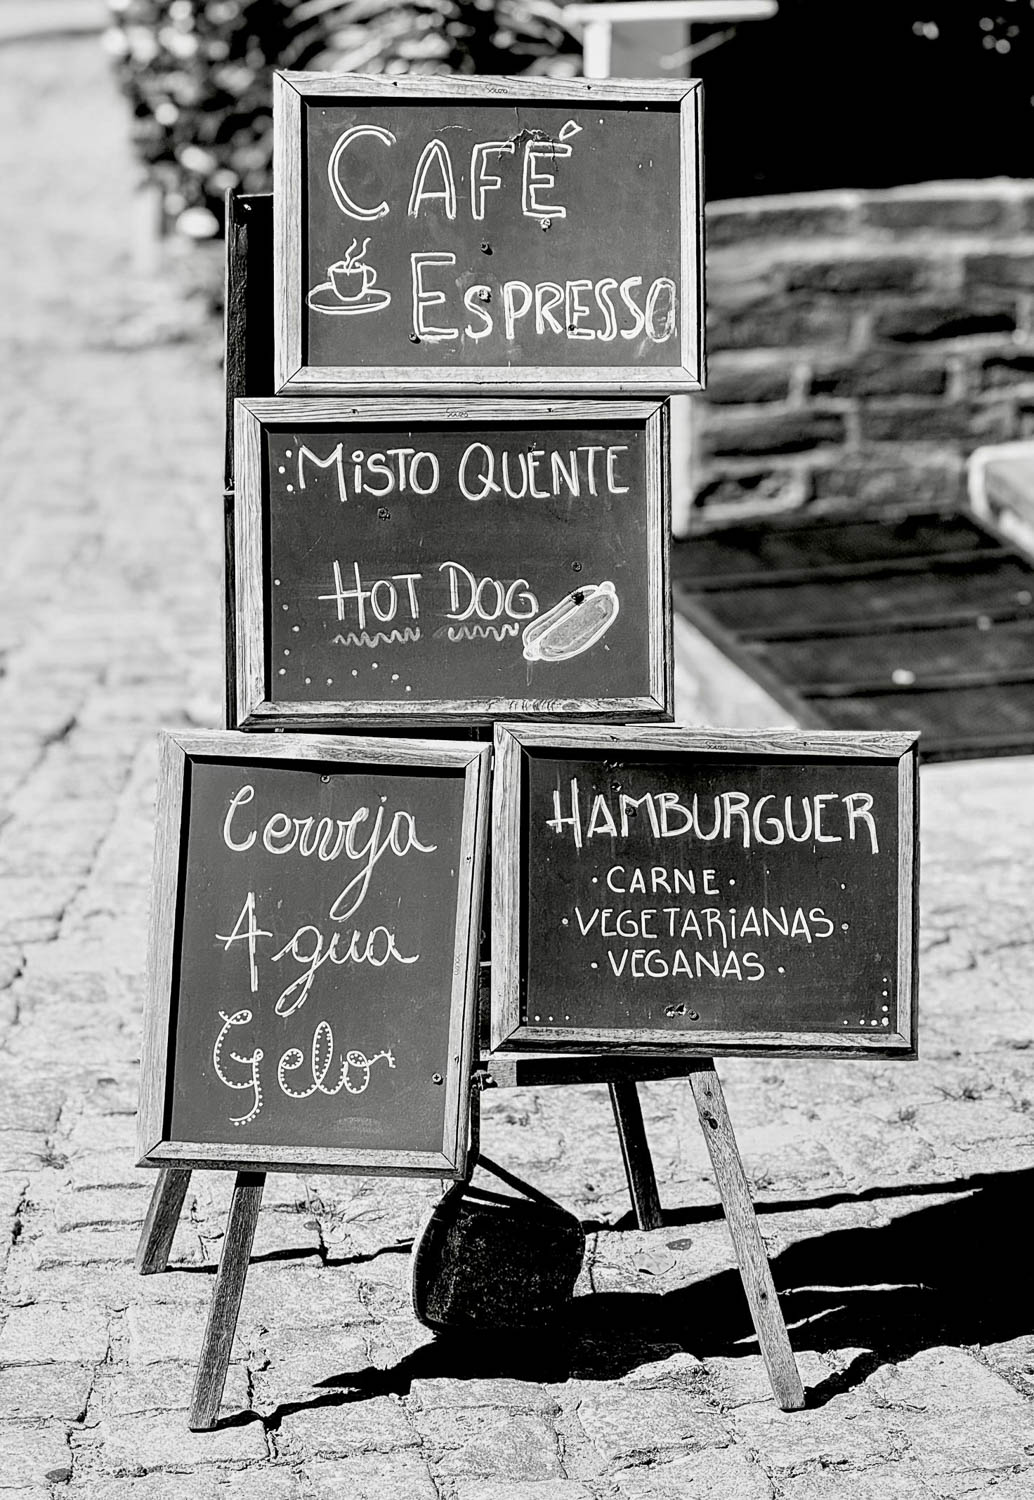 CAFÉ
ESPRESSO
MiSTO QUENTE
HOT DOG
Cerveja
Agua
Gelo
HAMBURGUER
·CARNE·
·VEGETARiANAS·
·VEGANAS·